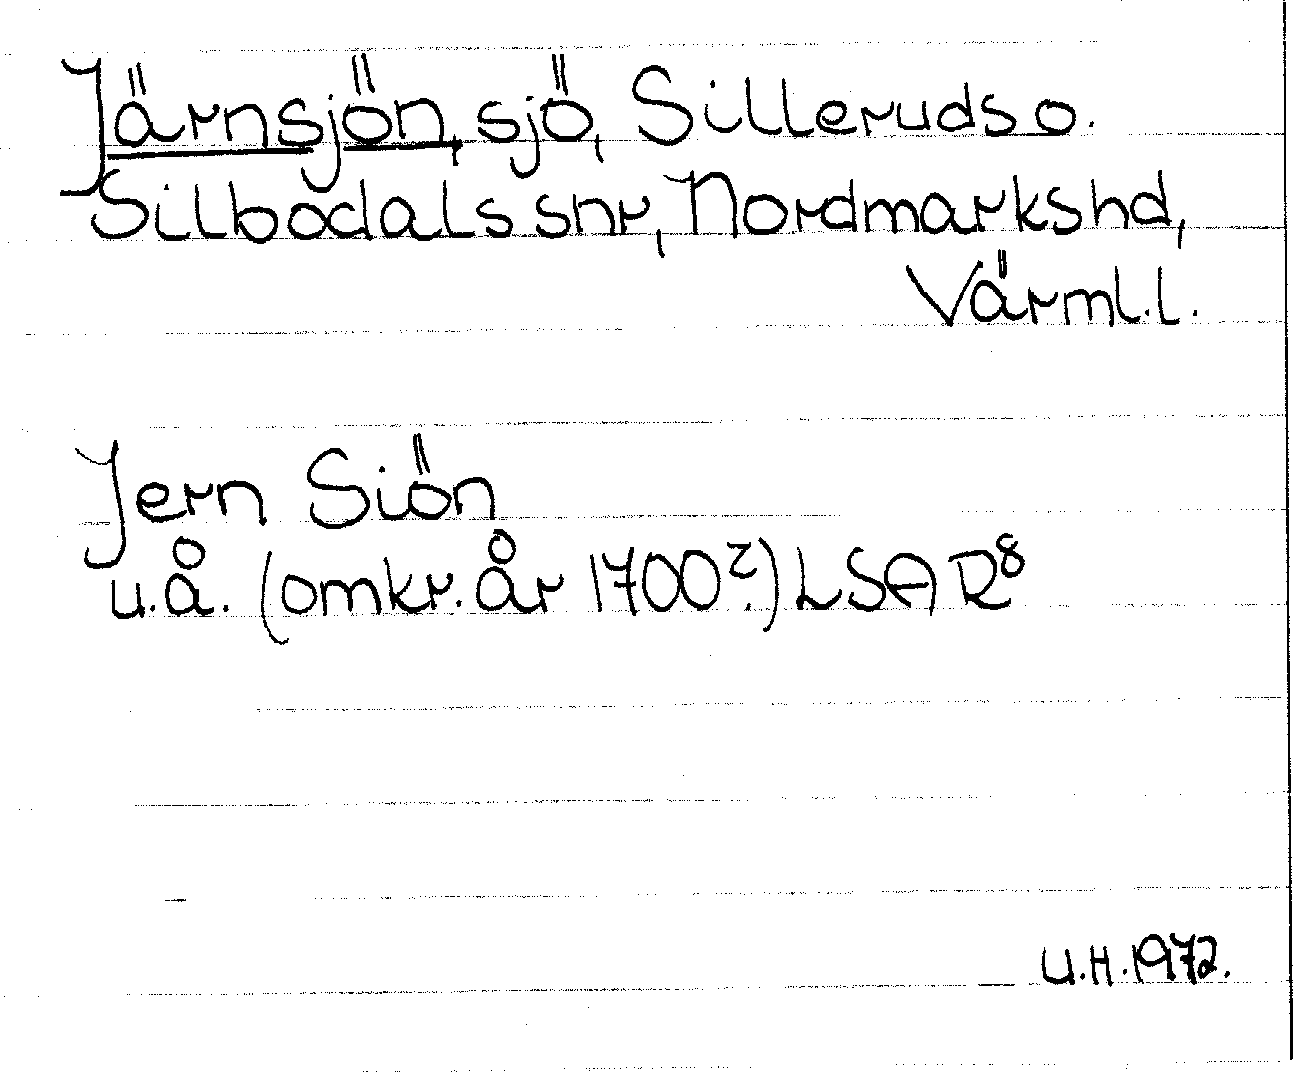 Järnsjön, sjö, Silleruds o.
Silbodals snr, Nordmarkshd,
Värml.l.
Jern Siön
u.å. (omkr. år 1700?) LSA R⁸
U.H. 1972.